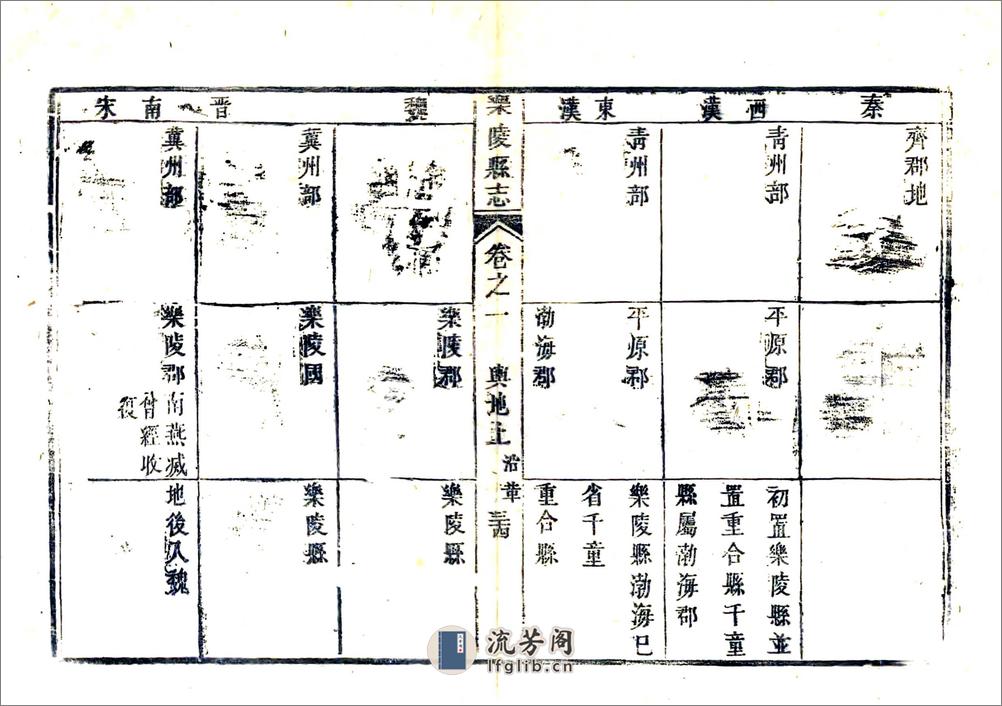 秦
齊郡地
西漢
青州部
平原郡
初置樂陵縣並
置重合縣千童
縣屬渤海郡
東漢
青州部
平原郡
渤海郡
樂陵縣渤海已
省千童
重合縣
樂陵縣志
卷之一
輿地上
沿革
魏
樂陵郡
樂陵縣
晋
冀州部
樂陵國
樂陵縣
南宋
冀州部
樂陵郡南燕滅地後入魏
曾經收
復
流芳阁
lfglib.cn